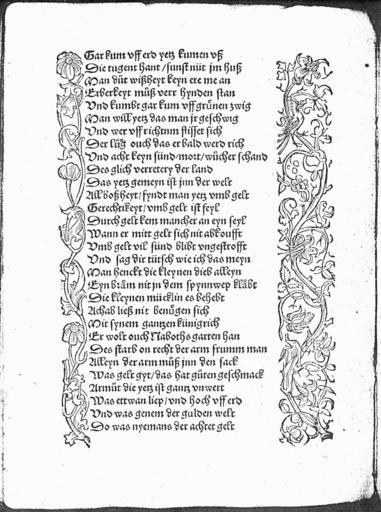 Gar kum vff erd yetz kumen vß
Die tugent hant / sunst nüt jm huß
Man düt wißheyt keyn ere me an
Erberkeyt můß verr hynden stan
Vnd kumbt gar kum vff grůnen zwig
Man will yetz das man jr geschwig
Vnd wer vff richtum flisset sich
Der lůgt ouch das er bald werd rich
Vnd acht keyn sünd / mort / wůcher schand
Des glich verretery der land
Das yetz gemeyn ist jnn der welt
All boßheyt / fyndt man yetz vmb gelt
Gerechtikeyt / vmb gelt ist feyl
Durch gelt kem mancher an eyn seyl
Wann er mitt gelt sich nit abkoufft
Vmb gelt vil sünd blibt vngestrofft
Vnd sag dir tütsch wie ich das meyn
Man henckt die kleynen dieb alleyn
Eyn bräm nit jn dem spynnwep kläbt
Die kleynen mücklin es behebt
Achab ließ nit benůgen sich
Mit synem gantzen künigrich
Er wolt ouch Naboths garten han
Des starb on recht der arm frumm man
Alleyn der arm můß jnn den sack
Was gelt gyt / das hat gůten geschmack
Armůt die yetz ist gantz vnwert
Was ettwan liep / vnd hoch vff erd
Vnd was genem der gulden welt
Do was nyemans der achtet gelt